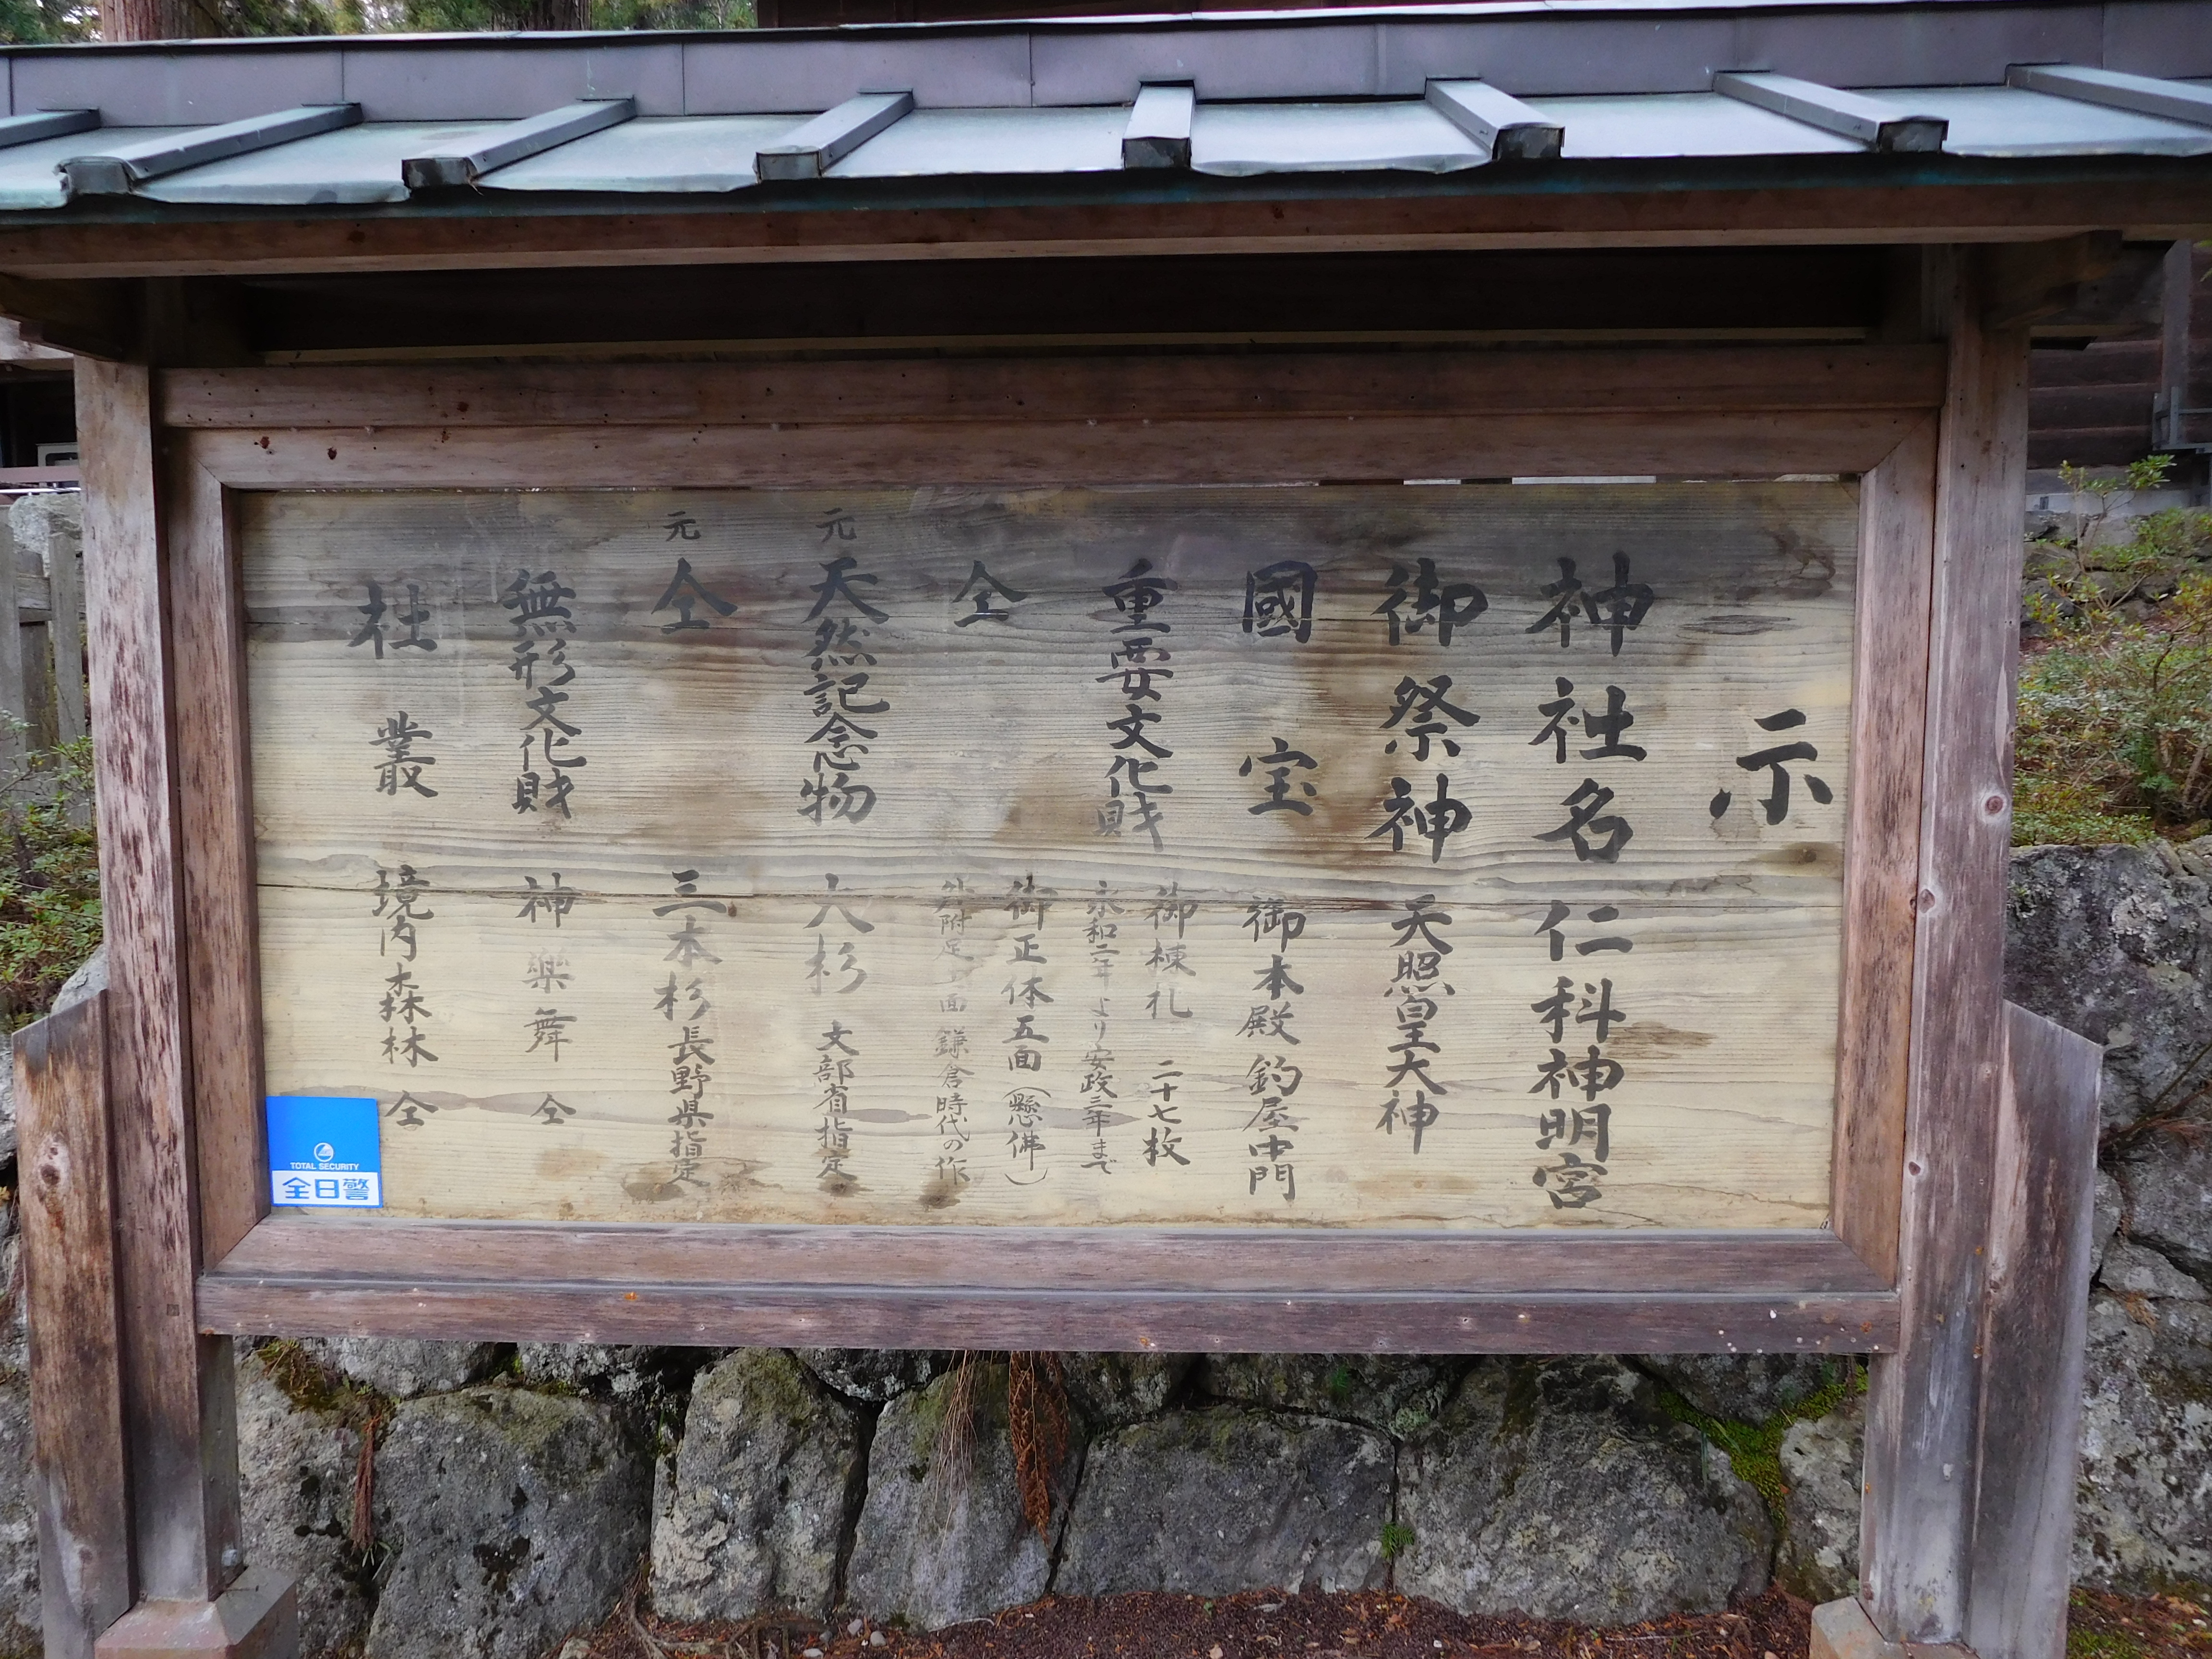 示
神社名 仁科神明宮
御祭神 天照皇大神
國宝 御本殿 釣屋 中門
重要文化財 御棟札 二十七枚
永和二年より安政三年まで
仝 御正体五面(懸佛)
外附足 面 鎌倉時代の作
元 天然記念物 大杉 文部省指定
元 仝 三本杉 長野県指定
無形文化財 神楽舞 仝
社叢 境内森林 仝
TOTAL SECURITY
全日警